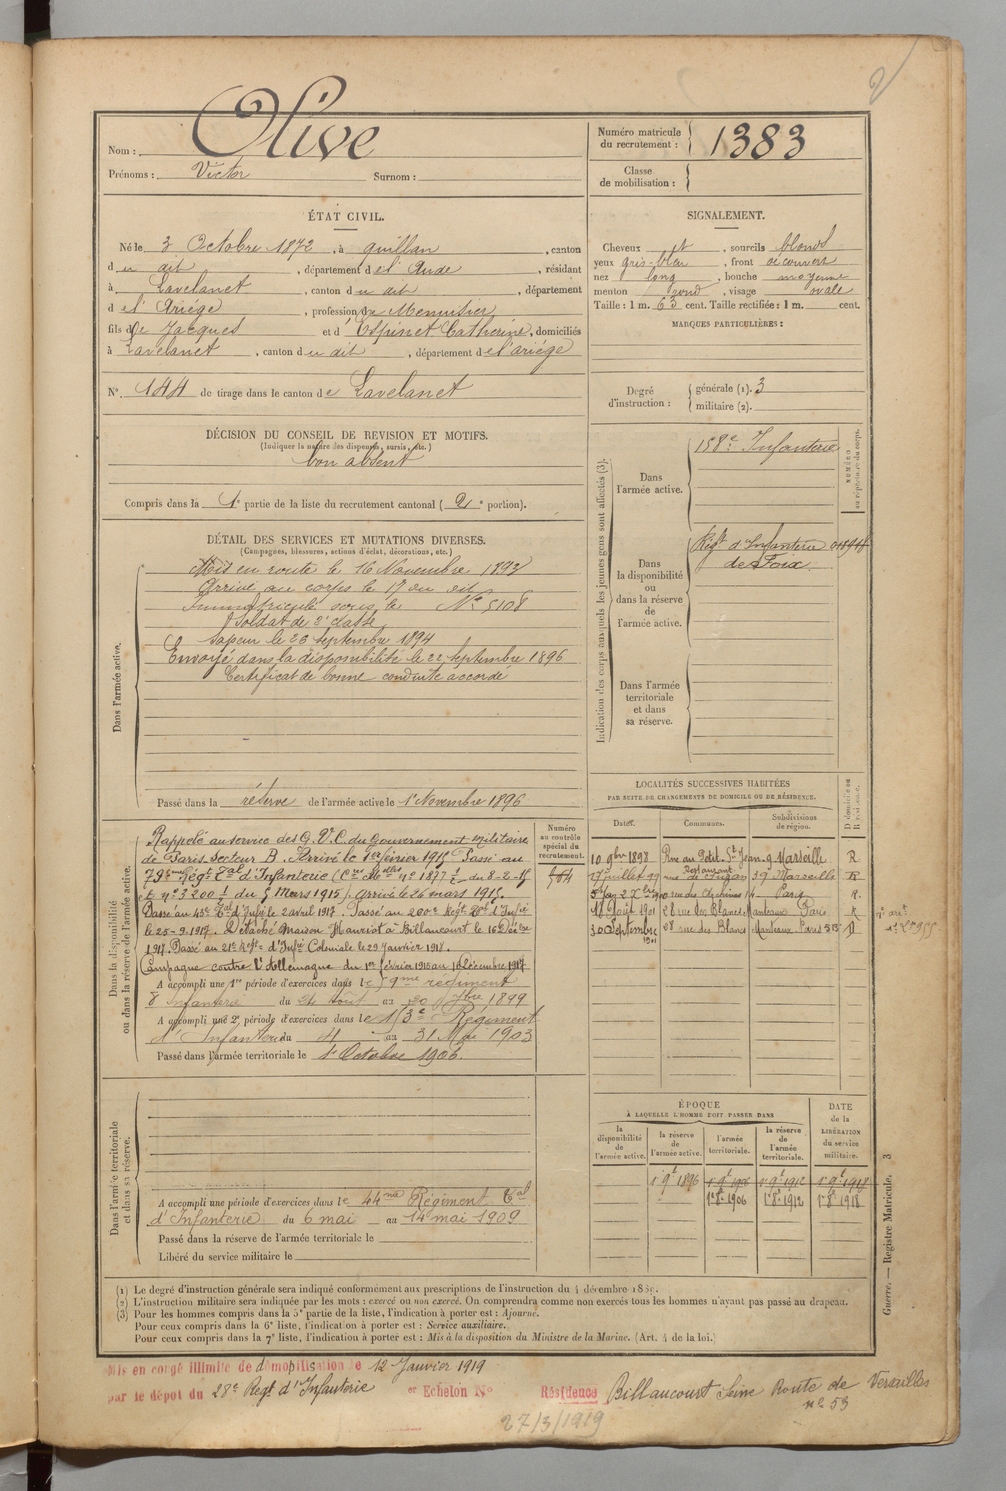 2
Nom : Olive
Prénoms : Victor Surnom :
Numéro matricule du recrutement : 1383
Classe de mobilisation :
ÉTAT CIVIL.
Né le 3 Octobre 1872, à Quillan, canton
du dit, département de l'Aude, résidant
à Lavelanet, canton du dit, département
de l'Ariége, profession de Menuisier
fils de Jacques et d'Espinet Catherine, domiciliés
à Lavelanet, canton du dit, département de l'ariége
N° 144 de tirage dans le canton de Lavelanet
SIGNALEMENT.
Cheveux et, sourcils blonds
yeux gris-bleu, front découvert
nez long, bouche moyenne
menton rond, visage ovale
Taille : 1 m. 63 cent. Taille rectifiée : 1 m. cent.
MARQUES PARTICULIÈRES :
Degré d'instruction : générale (1). 3
militaire (2).
DÉCISION DU CONSEIL DE REVISION ET MOTIFS.
(Indiquer la nature des dispenses, sursis, etc.)
bon absent
Compris dans la 1e partie de la liste du recrutement cantonal (2e portion).
DÉTAIL DES SERVICES ET MUTATIONS DIVERSES.
(Campagnes, blessures, actions d'éclat, décorations, etc.)
Dans l'armée active.
Mis en route le 16 Novembre 1893
Arrivé au corps le 17 du dit
Immatriculé sous le N° 5108
Soldat de 2e classe
Sapeur le 23 septembre 1894
Envoyé dans la disponibilité le 22 septembre 1896
Certificat de bonne conduite accordé
Passé dans la réserve de l'armée active le 1er Novembre 1896
Indication des corps auxquels les jeunes gens sont affectés (3).
Dans l'armée active.
158e Infanterie
NUMÉRO au répertoire du corps.
Dans la disponibilité ou dans la réserve de l'armée active.
Regt d'Infanterie
de Foix
Dans l'armée territoriale et dans sa réserve.
Dans la disponibilité ou dans la réserve de l'armée active.
Numéro au contrôle spécial du recrutement.
Rappelé au service des G.V.C. du Gouvernement militaire
de Paris secteur B. Arrivé le 1er février 1915 Passé au
79eme Régt Tal d'Infanterie (Cres Mlles n° 1877 1/1 du 8-2-15
et n° 3200 1/1 du 5 Mars 1915). arrivé le 26 mars 1915.
Passé au 45e Tal d'Infie le 2 avril 1917. Passé au 200e Regt Tal d'Infie
le 25-9-1917. Détaché Maison Hanriot à Billancourt le 16 Décbre
1917. Passé au 21e Regt d'Infie Coloniale le 29 Janvier 1918.
Campagne contre l'Allemagne du 1er février 1915 au 16 Décembre 1917
A accompli une 1re période d'exercices dans le 59me régiment
d'Infanterie du 24 août au 20 7bre 1899
A accompli une 2e période d'exercices dans le 113e Régiment
d'Infanterie du 4 au 31 Mai 1903
Passé dans l'armée territoriale le 1er Octobre 1906.
LOCALITÉS SUCCESSIVES HABITÉES
PAR SUITE DE CHANGEMENTS DE DOMICILE OU DE RÉSIDENCE.
Dates. Communes. Subdivisions de région. D domicile ou R résidence.
10 9bre 1898 Rue du Petit St Jean 9 Marseille R
17 juillet 99 39 Marseille R
Paris R
11 Août 1901 28 rue des Blancs Manteaux Paris R
30 Septembre 1901 28 rue des Blancs Manteaux Paris D
Dans l'armée territoriale et dans sa réserve.
A accompli une période d'exercices dans le 44me Régiment Tal
d'Infanterie du 6 mai au 14 mai 1909
Passé dans la réserve de l'armée territoriale le
Libéré du service militaire le
ÉPOQUE
À LAQUELLE L'HOMME DOIT PASSER DANS
DATE de la LIBÉRATION du service militaire.
la disponibilité de l'armée active. la réserve de l'armée active. l'armée territoriale. la réserve de l'armée territoriale.
1 9e 1896 1 9e 1906 1 9e 1912 1 9e 1918
1er 8e 1906 1er 8e 1912 1er 8e 1918
Guerre. — Registre Matricule. 3
(1) Le degré d'instruction générale sera indiqué conformément aux prescriptions de l'instruction du 4 décembre 1889.
(2) L'instruction militaire sera indiquée par les mots : exercé ou non exercé. On comprendra comme non exercés tous les hommes n'ayant pas passé au drapeau.
(3) Pour les hommes compris dans la 5e partie de la liste, l'indication à porter est : Ajourné.
Pour ceux compris dans la 6e liste, l'indication à porter est : Service auxiliaire.
Pour ceux compris dans la 7e liste, l'indication à porter est : Mis à la disposition du Ministre de la Marine. (Art. 4 de la loi.)
Mis en congé illimité de démobilisation le 12 Janvier 1919
par le dépôt du 28e Regt d'Infanterie er Echelon N° Résidence Billancourt Seine Route de Versailles
n° 53
27/3/1919